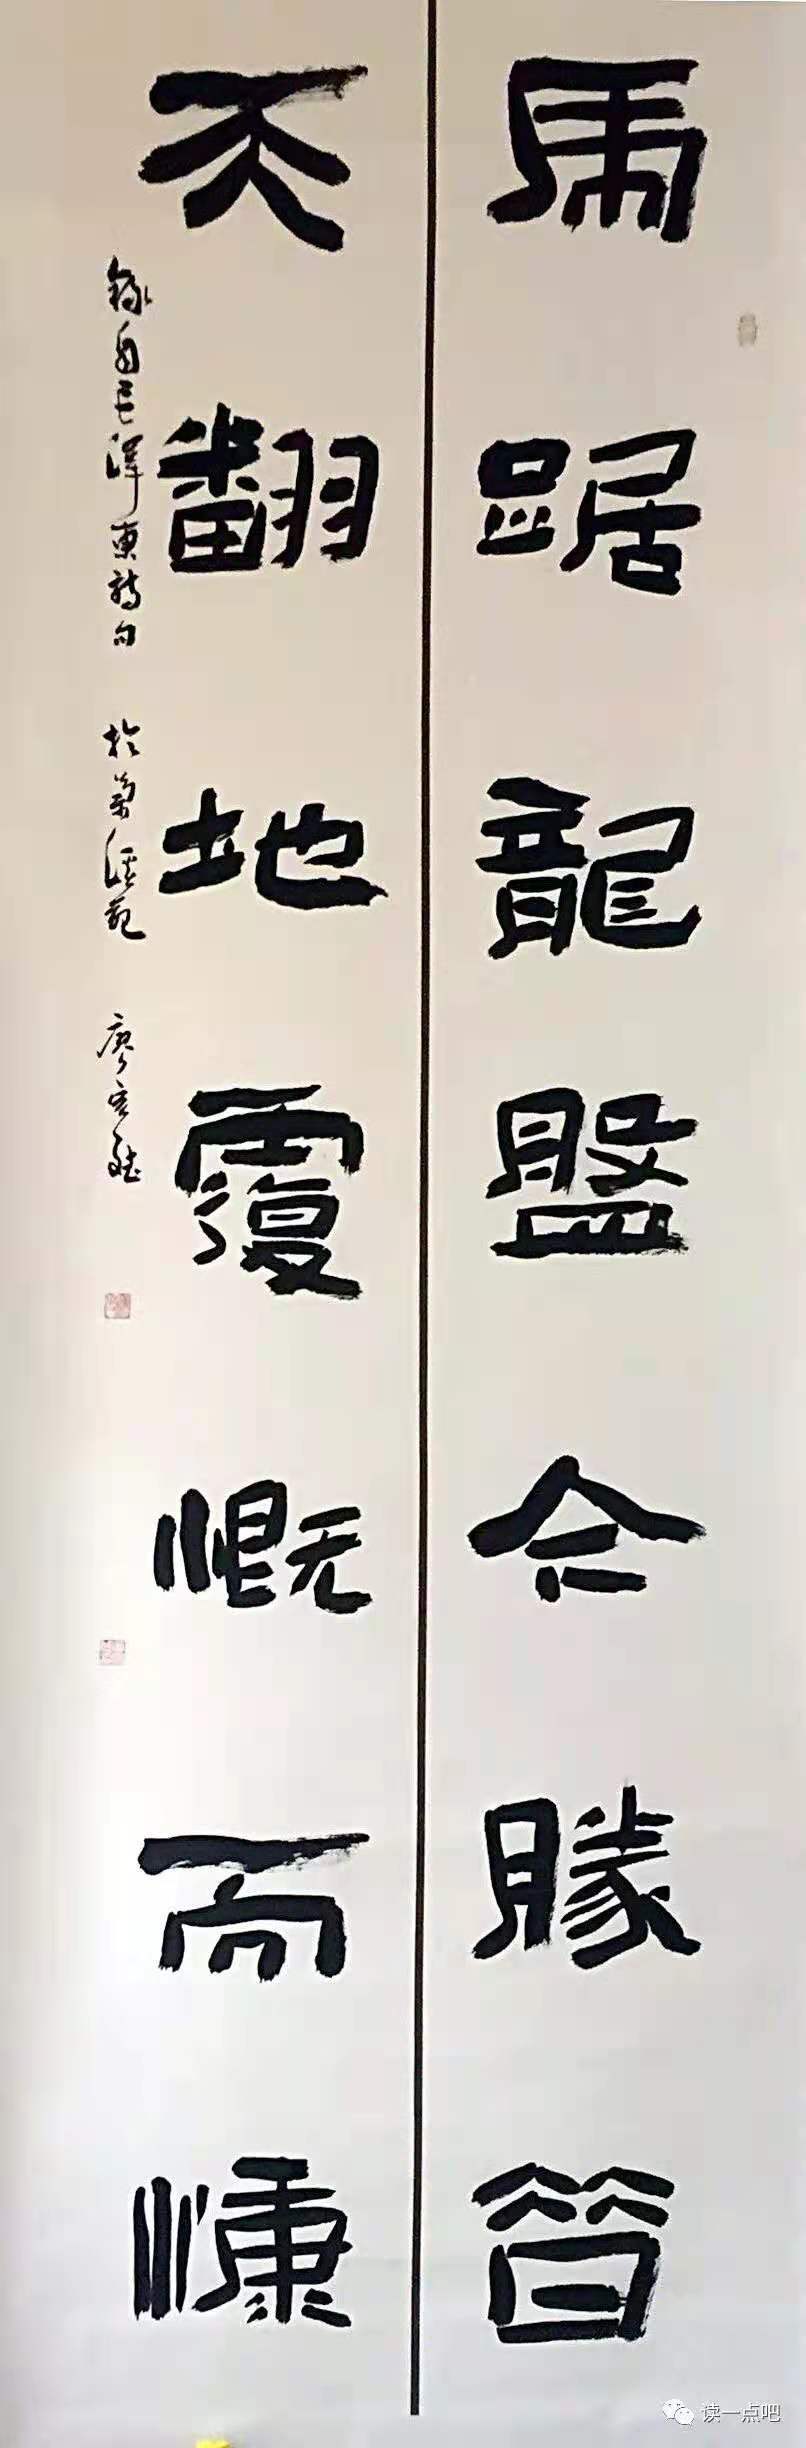 虎踞龍盤今勝昔
天翻地覆慨而慷
錄自毛澤東詩句 於 廖
读一点吧